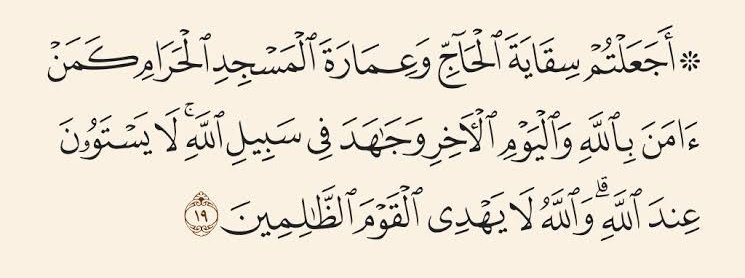 ۞ أَجَعَلْتُمْ سِقَايَةَ ٱلْحَآجِّ وَعِمَارَةَ ٱلْمَسْجِدِ ٱلْحَرَامِ كَمَنْ
ءَامَنَ بِٱللَّهِ وَٱلْيَوْمِ ٱلْأَخِرِ وَجَـٰهَدَ فِى سَبِيلِ ٱللَّهِ ۚ لَا يَسْتَوُۥنَ
عِندَ ٱللَّهِ ۗ وَٱللَّهُ لَا يَهْدِى ٱلْقَوْمَ ٱلظَّـٰلِمِينَ ١٩